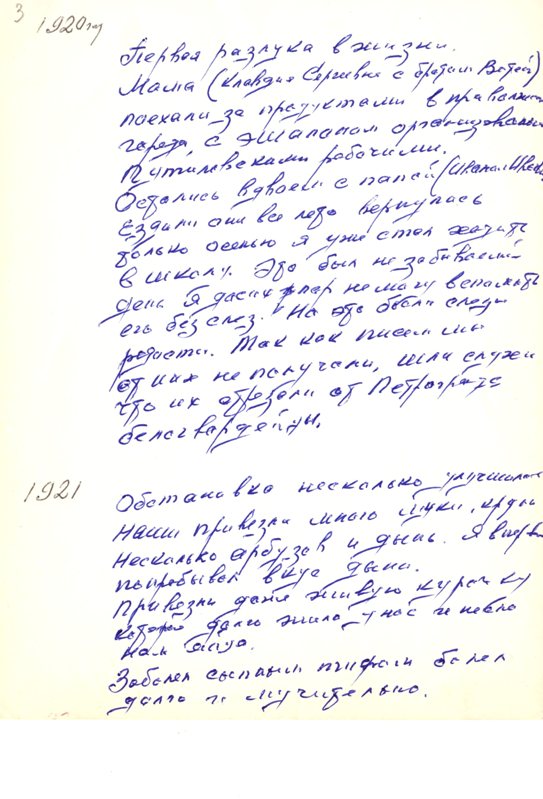 3
1920 год
Первая разлука в жизни.
Мама (Клавдия Сергеевна с братом Витей)
поехали за продуктами в
города, с эшалапом
Путиловскими рабочими.
Остались вдвоем с папой
Ездили они все лето вернулась
только осенью я уже стал ходить
в школу. Это был не забываемый
день Я до сих пор не могу вспомнить
его без слез. Но это были слезы
радости. Так как писем мы
от них не получали, шли слухи
что их отрезали от Петрограда
белогвардейцы.
1921
Обстановка несколько улучшилась
Наши привезли много муки, крупы
несколько арбузов и дынь. Я впервые
попробывал вкус дыни.
Привезли даже живую курочку
которая долго жила у нас и несла
нам яйца.
Заболел сыпным тифом болел
долго и мучительно.